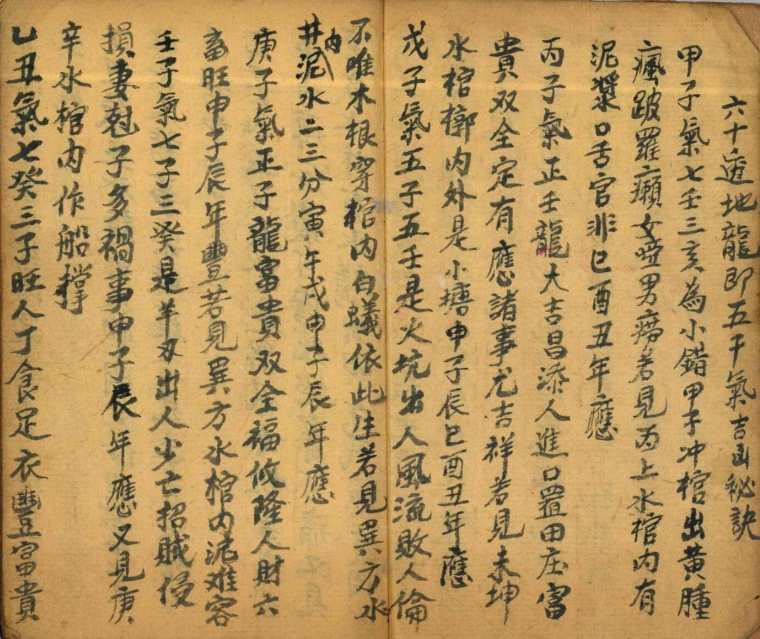 六十透地龍即五子氣吉凶秘訣
甲子氣七壬三亥為小錯甲子冲棺出黃腫
瘋跛羅癩女啞男癆若見丙上水棺內有
泥漿口舌官非巳酉丑年應
丙子氣正壬龍大吉昌添人進口置田庄富
貴双全定有應諸事尤吉祥若見未坤
水棺槨內外是小塘申子辰巳酉丑年應
戊子氣五子五壬是火坑出人風流敗人倫
不唯木根穿棺內白蟻依此生若見巽方水
井內泥水二三分寅午戌申子辰年應
庚子氣正子龍富貴双全福攸隆人財六
畜旺申子辰年豐若見巽方水棺內泥难容
壬子氣七子三癸是羊刃出人少亡招賊侵
損妻尅子多禍事申子辰年應又見庚
辛水棺內作船撑
乙丑氣七癸三子旺人丁食足衣豐富貴